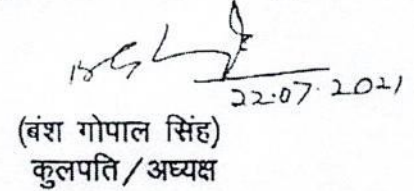 22.07.2021
(बंश गोपाल सिंह)
कुलपति / अघ्यक्ष